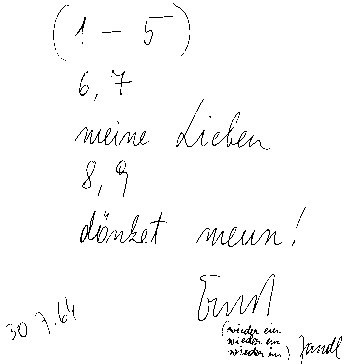 (1 – 5)
6, 7
meine Lieben
8, 9
dönket meun!
Ernst
(wieder ein
wieder ein
wieder im) Jandl
30 7. 64